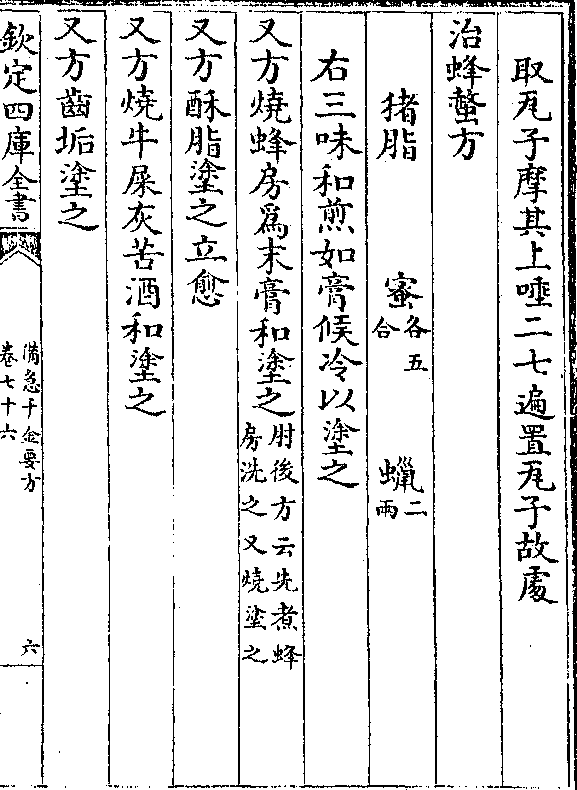 取瓦子摩其上唾二七遍置瓦子故處
治蜂螫方
猪脂　蜜各五合　蠟二兩
右三味和煎如膏候冷以塗之
又方燒蜂房爲末膏和塗之肘後方云先煮蜂房洗之又燒塗之
又方酥脂塗之立愈
又方燒牛屎灰苦酒和塗之
又方齒垢塗之
欽定四庫全書
備急千金要方
卷七十六
六